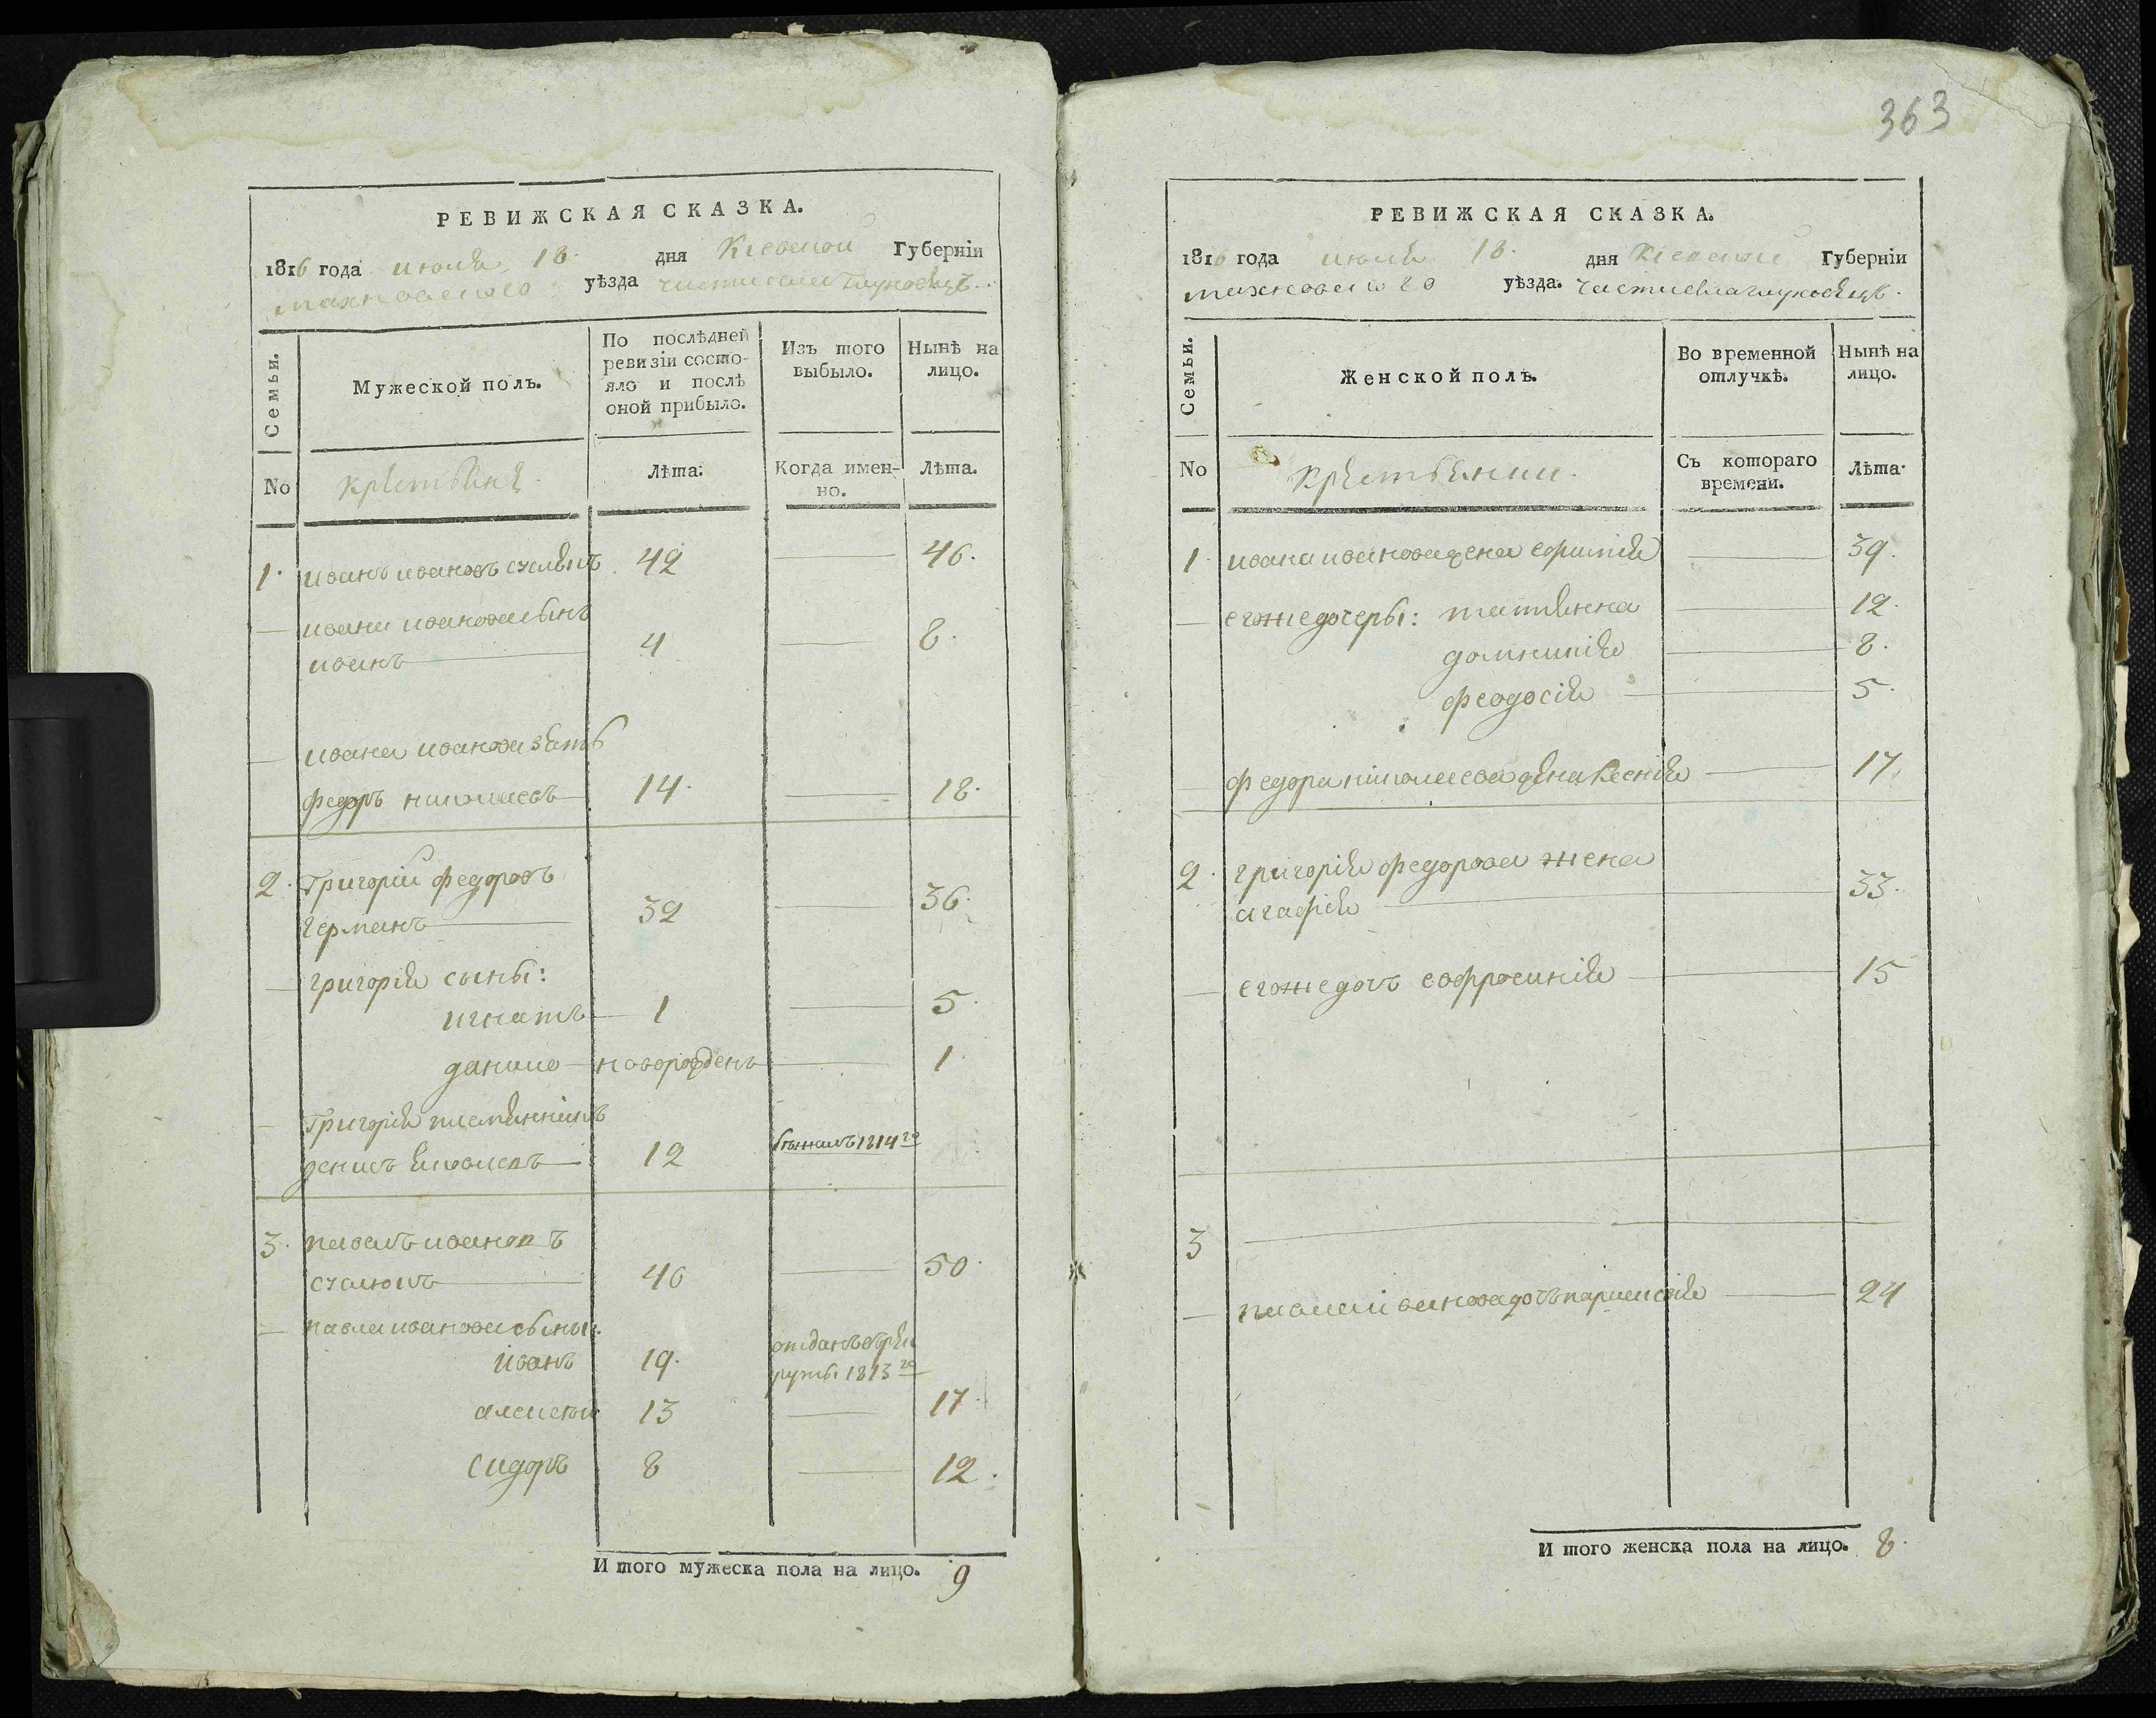 363
РЕВИЖСКАЯ СКАЗКА.
1816 года июля 18. дня Кіевской Губерніи
махновского уѣзда части села Глуховецъ.
Семьи.
Мужеской полъ.
По послѣдней ревизіи состо-
яло и послѣ оной прибыло.
Изъ того выбыло.
Нынѣ на лицо.
No
крестьяне.
Лѣта:
Когда имен-
но.
Лѣта.
1. иванъ ивановъ 42 46.
ивана иванова сынъ
иванъ 4 8.
ивана иванова зять
федоръ 14. 18.
2. Григорій федоровъ
германъ 32 36.
григорія сыны:
игнатъ 1 5.
данило новорожденъ 1.
Григорія племянникъ
денисъ 12 бежалъ 1814го
3. павелъ ивановъ
46 50.
павла иванова сыны:
иванъ 19. отданъ въ рек
руты. 1813го
алексей 13 17.
Сидоръ 8 12.
И того мужеска пола на лицо. 9
РЕВИЖСКАЯ СКАЗКА.
1816 года июля 18. дня Кіевской Губерніи
махновского уѣзда. части села глуховецъ.
Семьи.
Женской полъ.
Во временной отлучкѣ.
Нынѣ на лицо.
No
крестьянки.
Съ котораго времени.
Лѣта.
1. ивана иванова жена 39.
его же дочеры: татянна 12.
домникія 8.
феодосія 5.
федора жена Ксенія 17.
2. григорія федорова жена
агафія 33.
его же дочъ ефросинія 15
3
павла иванова дочъ 24
И того женска пола на лицо. 8.